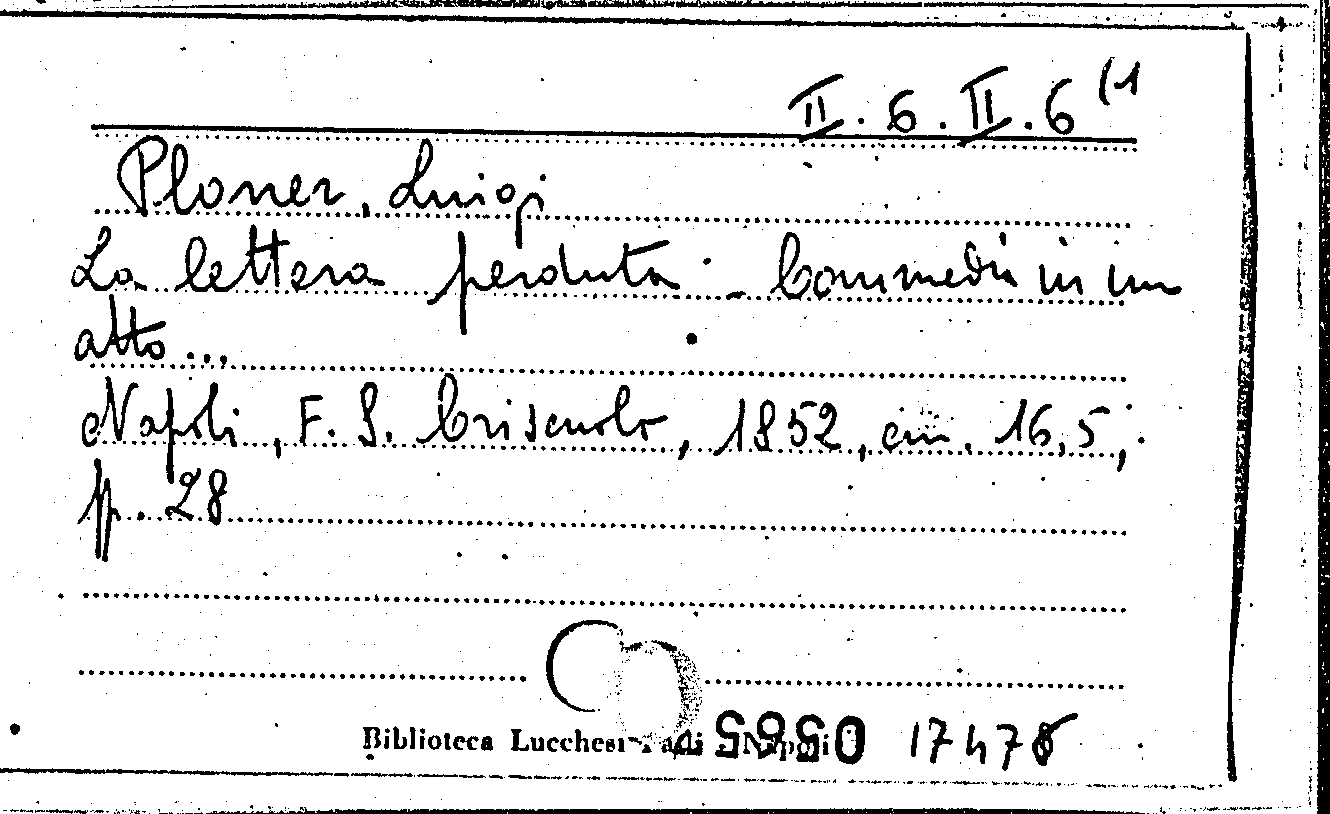 II. 6. II. 6 (1
Ploner, Luigi
La lettera perduta. - Commedia in un
atto...
Napoli, F. S. Criscuolo, 1852, cm. 16,5;
p. 28
Biblioteca Lucchesi Palli - Napoli 17478